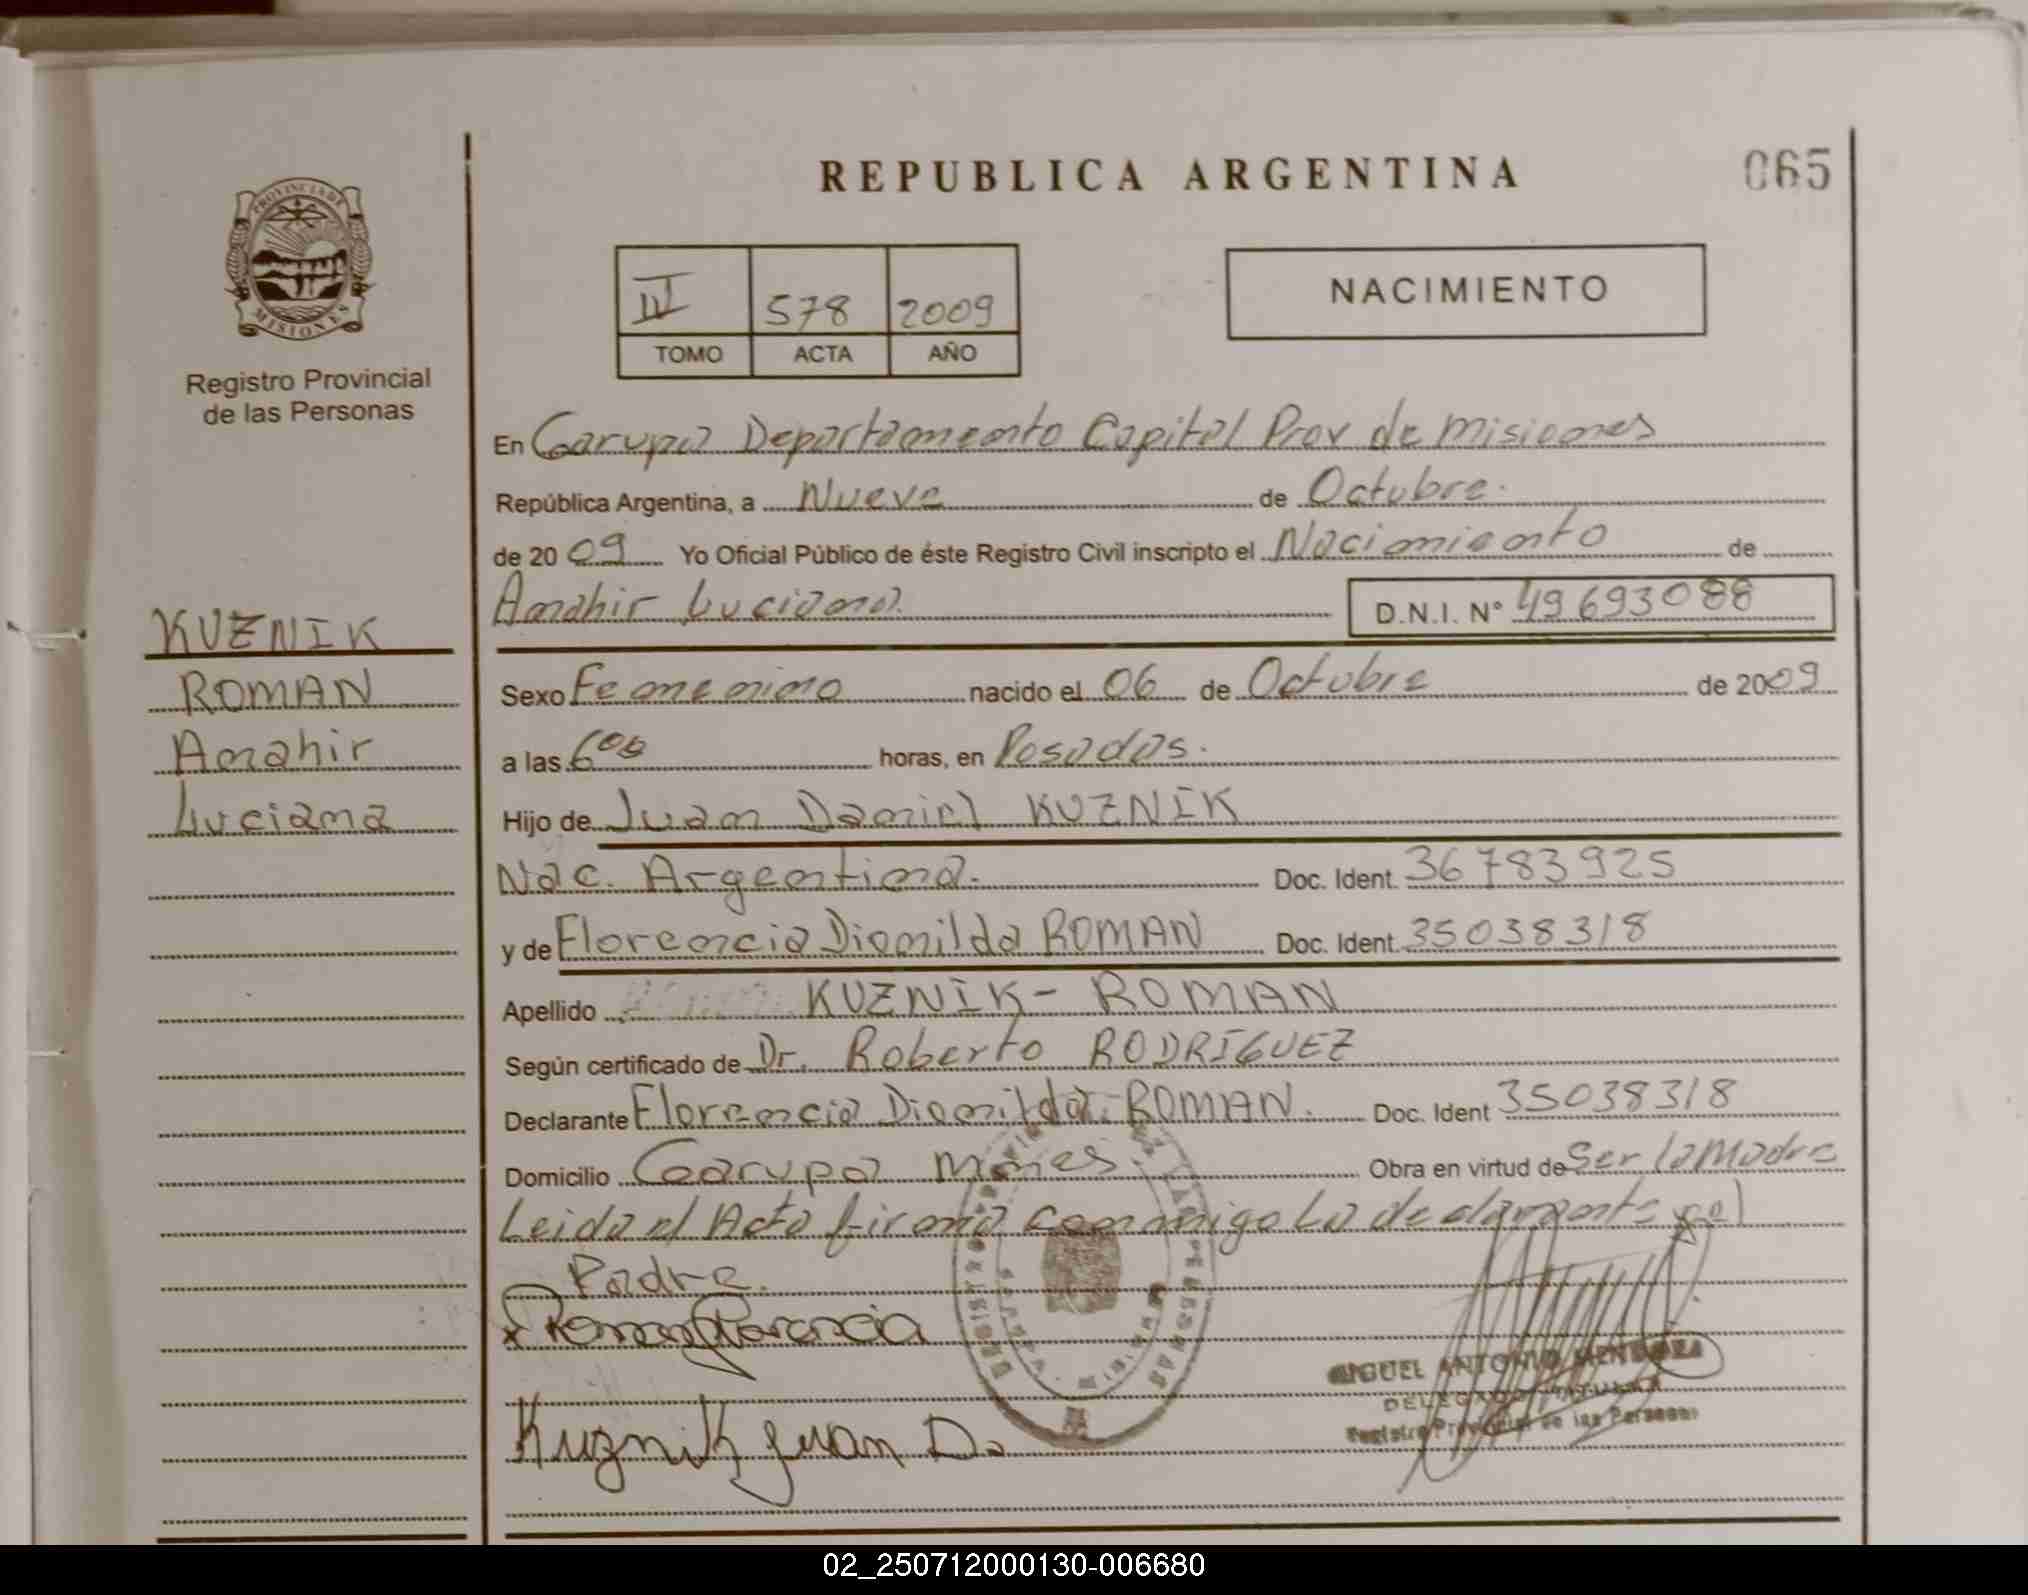 REPUBLICA ARGENTINA
065
PROVINCIA DE
MISIONES
Registro Provincial
de las Personas
578 2009
TOMO ACTA AÑO
NACIMIENTO
En Garupa Departamento Capital Prov de Misiones
República Argentina, a Nueve de Octubre.
de 2009 Yo Oficial Público de éste Registro Civil inscripto el Nacimiento de
Anahir Luciana. D.N.I. Nº 49693088
KUZNIK
ROMAN
Anahir
Luciana
Sexo Femenino nacido el 06 de Octubre de 2009
a las 6⁰⁰ horas, en Posadas.
Hijo de Juan Daniel KUZNIK
Nac. Argentina. Doc. Ident. 36783925
y de Florencia Dionilda ROMAN Doc. Ident. 35038318
Apellido KUZNIK - ROMAN
Según certificado de Dr. Roberto RODRIGUEZ
Declarante Florencia Dionilda ROMAN. Doc. Ident 35038318
Domicilio Garupa Mnes. Obra en virtud de Ser la Madre
Leida el Acta firma conmigo La declarante y el
Padre.
x Roman Florencia
Kuznik Juan D.
MIGUEL ANTONIO MENDOZA
DELEGADO TITULAR
Registro Provincial de las Personas
02_250712000130-006680